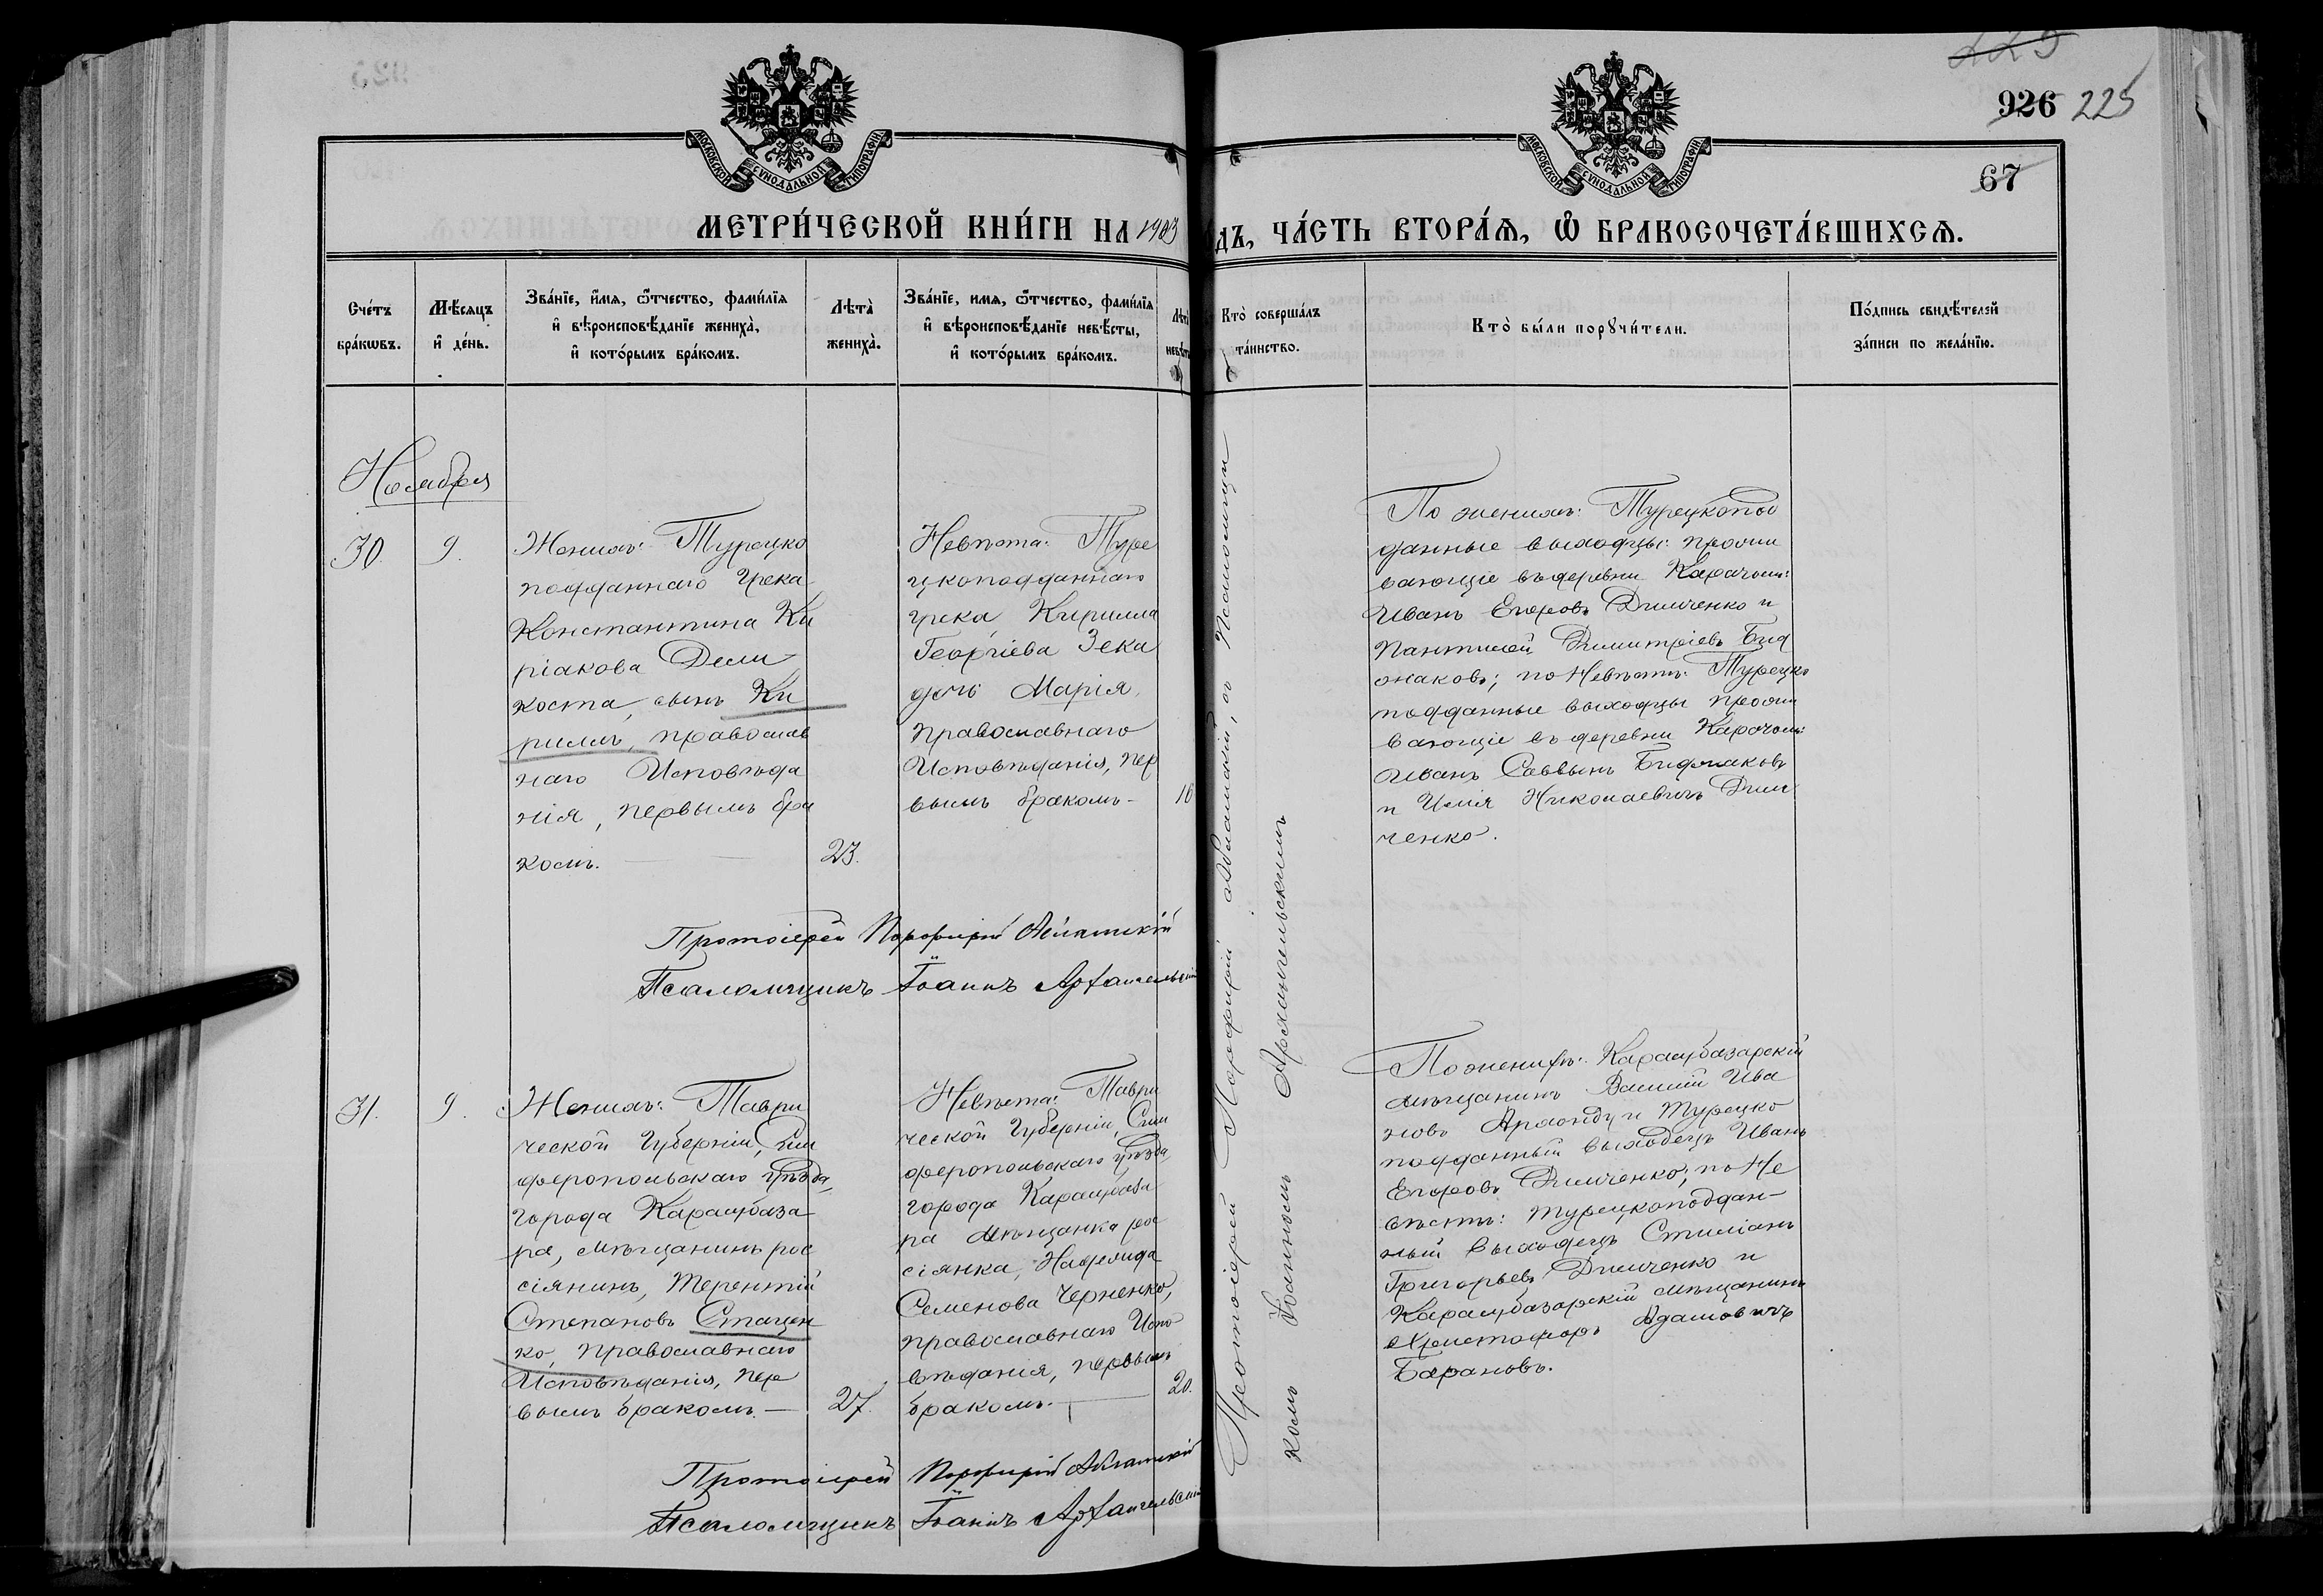 229
926 225
67
МОСКОВСКОЙ СѴНОДАЛЬНОЙ ТИПОГРАФІИ
МОСКОВСКОЙ СѴНОДАЛЬНОЙ ТИПОГРАФІИ
МЕТРИ́ЧЕСКОЙ КНИ́ГИ НА 1903
ДЪ, ЧА́СТЬ ВТОРА́Я, Ѽ БРАКОСОЧЕТА́ВШИХСЯ.
Сче́тъ бра́кѡвъ.
Мѣ́сяцъ и҆ де́нь.
Зва́нїе, и҆́мя, ѻ҆́тчество, фами́лїя и҆ вѣроисповѣ́данїе жениха̀, и҆ кото́рымъ бра́комъ.
Лѣта̀ жениха̀.
Зва́нїе, имя, ѻ҆́тчество, фами́лїя и҆ вѣроисповѣ́данїе невѣ́сты, и҆ кото́рымъ бра́комъ.
Лѣта̀ невѣ́с
Кто̀ соверша́лъ та́инство.
Кто̀ бы́ли порꙋчи́тели.
По́дпись свидѣ́телей за́писи по жела́нїю.
Ноября
30.
9.
Женихъ: Турецко
подданнаго Грека
Константина Ки
ріакова Дели
коста, сынъ Ки
риллъ, православ
наго Исповѣда
нія, первымъ бра
комъ.
23.
Невѣста: Туре
цкоподданнаго
грека Кирилла
Георгіева Зека
дочь Марія,
православнаго
Исповѣданія, пер
вымъ бракомъ -
16
Протоіерей Порфирій
Псаломщикъ Іоаннъ Архангельскій
Протоіерей Порфирій, съ Псаломщи
комъ Іоанномъ Архангельскимъ
По женихѣ: Турецкопод
данные выходцы прожи
вающіе въ деревни Карачоль:
Иванъ Егоровъ Димченко и
Пантилей Димитріевъ Бид
жаковъ; по Невѣстѣ: Турецко
подданные выходцы прожи
вающіе въ деревни Карачоль:
Иванъ Саввинъ Биджаковъ
и Илія Николаевичъ Дим
ченко.
31.
9.
Женихъ: Таври
ческой Губерніи, Сим
феропольскаго уѣзда,
города Карасубаза
ра, мѣщанинъ рос
сіянинъ, Терентій
Степановъ Стацен
ко, православнаго
Исповѣданія, пер
вымъ бракомъ. —
27.
Невѣста: Таври
ческой Губерніи, Сим
феропольскаго уѣзда,
города Карасубаза
ра мѣщанка рос
сіянка, Надежда
Семенова Черненко,
православнаго Испо
вѣданія, первымъ
бракомъ.
20.
Протоіерей Порфирій
Псаломщикъ Іоаннъ Архангельскій
По женихѣ: Карасубазарскій
мѣщанинъ Василій Ива
новъ и Турецко
подданный выходецъ Иванъ
Егоровъ Димченко; по Не
вѣстѣ: турецкоподдан-
ный выходецъ Стиліанъ
Григорьевъ Димченко и
Карасубазарскій мѣщанинъ
Христофоръ Адамовичъ
Барановъ.